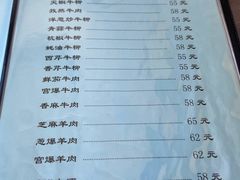 尖椒牛柳 55元
孜然牛肉 58元
洋葱炒牛柳 55元
青蒜牛柳 55元
杭椒牛柳 58元
蚝油牛柳 58元
西芹牛柳 55元
香芹牛柳 55元
鲜茄牛肉 58元
宫爆牛肉 58元
香麻牛肉 58元
芝麻羊肉 65元
葱爆羊肉 62元
宫爆羊肉 62元
58元